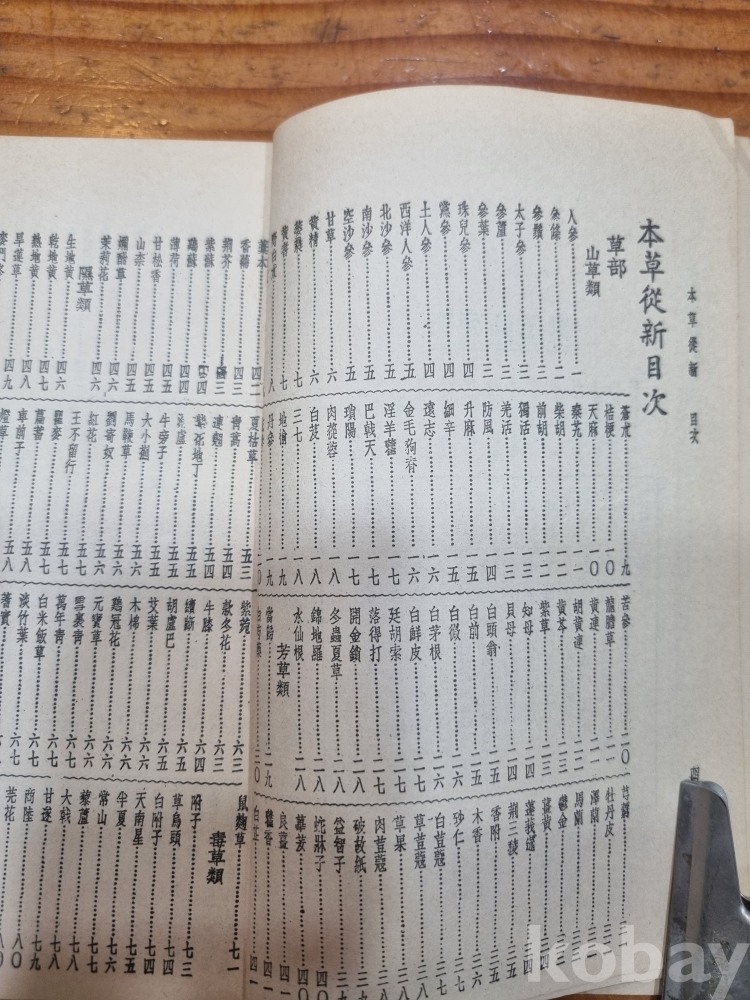 本草從新 目次
本草從新目次
草部
山草類
人參 一
參條 三
參鬚 三
太子參 三
參蘆 三
參葉 三
珠兒參 四
黨參 四
土人參 四
西洋人參 五
北沙參 五
南沙參 五
空沙參 五
甘草 六
黃精 六
葳蕤 七
黃耆 七
蒼朮 九
桔梗 一〇
天麻 一〇
秦艽 一一
柴胡 一一
前胡 一二
獨活 一三
羌活 一三
防風 一四
升麻 一五
細辛 一五
遠志 一六
金毛狗脊 一六
淫羊藿 一七
巴戟天 一七
瑣陽 一七
肉蓯蓉 一八
白芨 一八
三七 一八
地榆 一九
丹參 一九
苦參 二〇
龍膽草 二一
黃連 二一
胡黃連 二二
黃芩 二三
紫草 二三
知母 二四
貝母 二四
白頭翁 二五
白前 二五
白薇 二六
白茅根 二六
白鮮皮 二七
延胡索 二七
落得打 二七
開金鎖 二七
冬蟲夏草 二八
錦地羅 二八
水仙根 二八
芳草類
當歸 二九
芎藭
牡丹皮
澤蘭
馬蘭
鬱金
薑黃
蓬莪荗
荊三稜 三五
香附 三五
木香 三六
砂仁 三七
白荳蔻 三七
草荳蔻 三八
草果 三八
肉荳蔻 三八
破故紙 三九
益智子
蛇牀子 四〇
蓽茇
良薑
藿香
白芷
藁本
香薷
荊芥
紫蘇 四四
雞蘇 四四
薄荷 四四
甘松香 四五
山柰 四五
嬭酣草 四六
茉莉花 四六
隰草類
生地黃 四六
乾地黃 四七
熟地黃 四七
旱蓮草 四八
夏枯草 五三
青蒿 五四
連翹 五四
紫花地丁 五五
漏盧 五五
牛旁子 五五
大小薊 五六
馬鞭草 五六
劉寄奴 五六
紅花 五六
王不留行 五七
瞿麥 五七
萹蓄 五七
車前子 五八
燈草 五八
紫菀 六三
款冬花 六三
牛膝 六四
續斷 六五
胡盧巴 六五
艾葉 六五
木棉 六六
雞冠花 六六
元寶草 六六
雪裏青 六七
萬年青 六七
白米飯草 六七
淡竹葉 六七
蓍實
鼠麴草 七一
毒草類
附子 七三
草烏頭 七四
白附子 七四
天南星 七五
半夏 七六
常山 七七
藜蘆 七七
大戟 七八
甘遂 七九
商陸 八〇
芫花 八〇
kobay